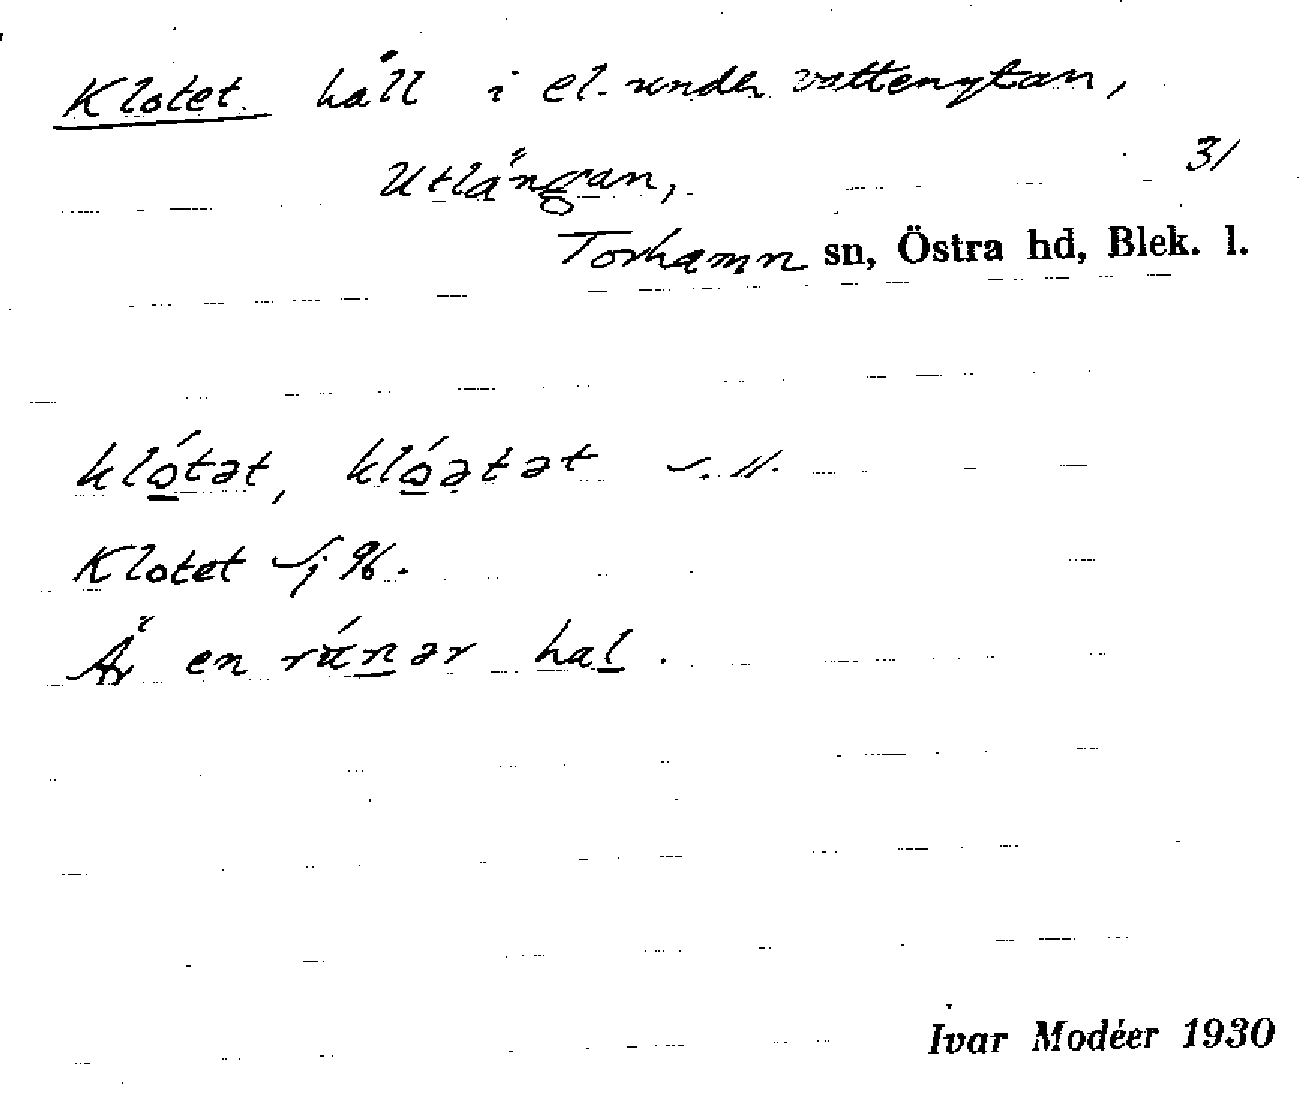 Klotet. håll i el. under vattenytan,
Utlängan,
31
Torhamn sn, Östra hd, Blek. l.
klótət, klóətət
Klotet sj 96.
Är en rúnər hal.
Ivar Modéer 1930